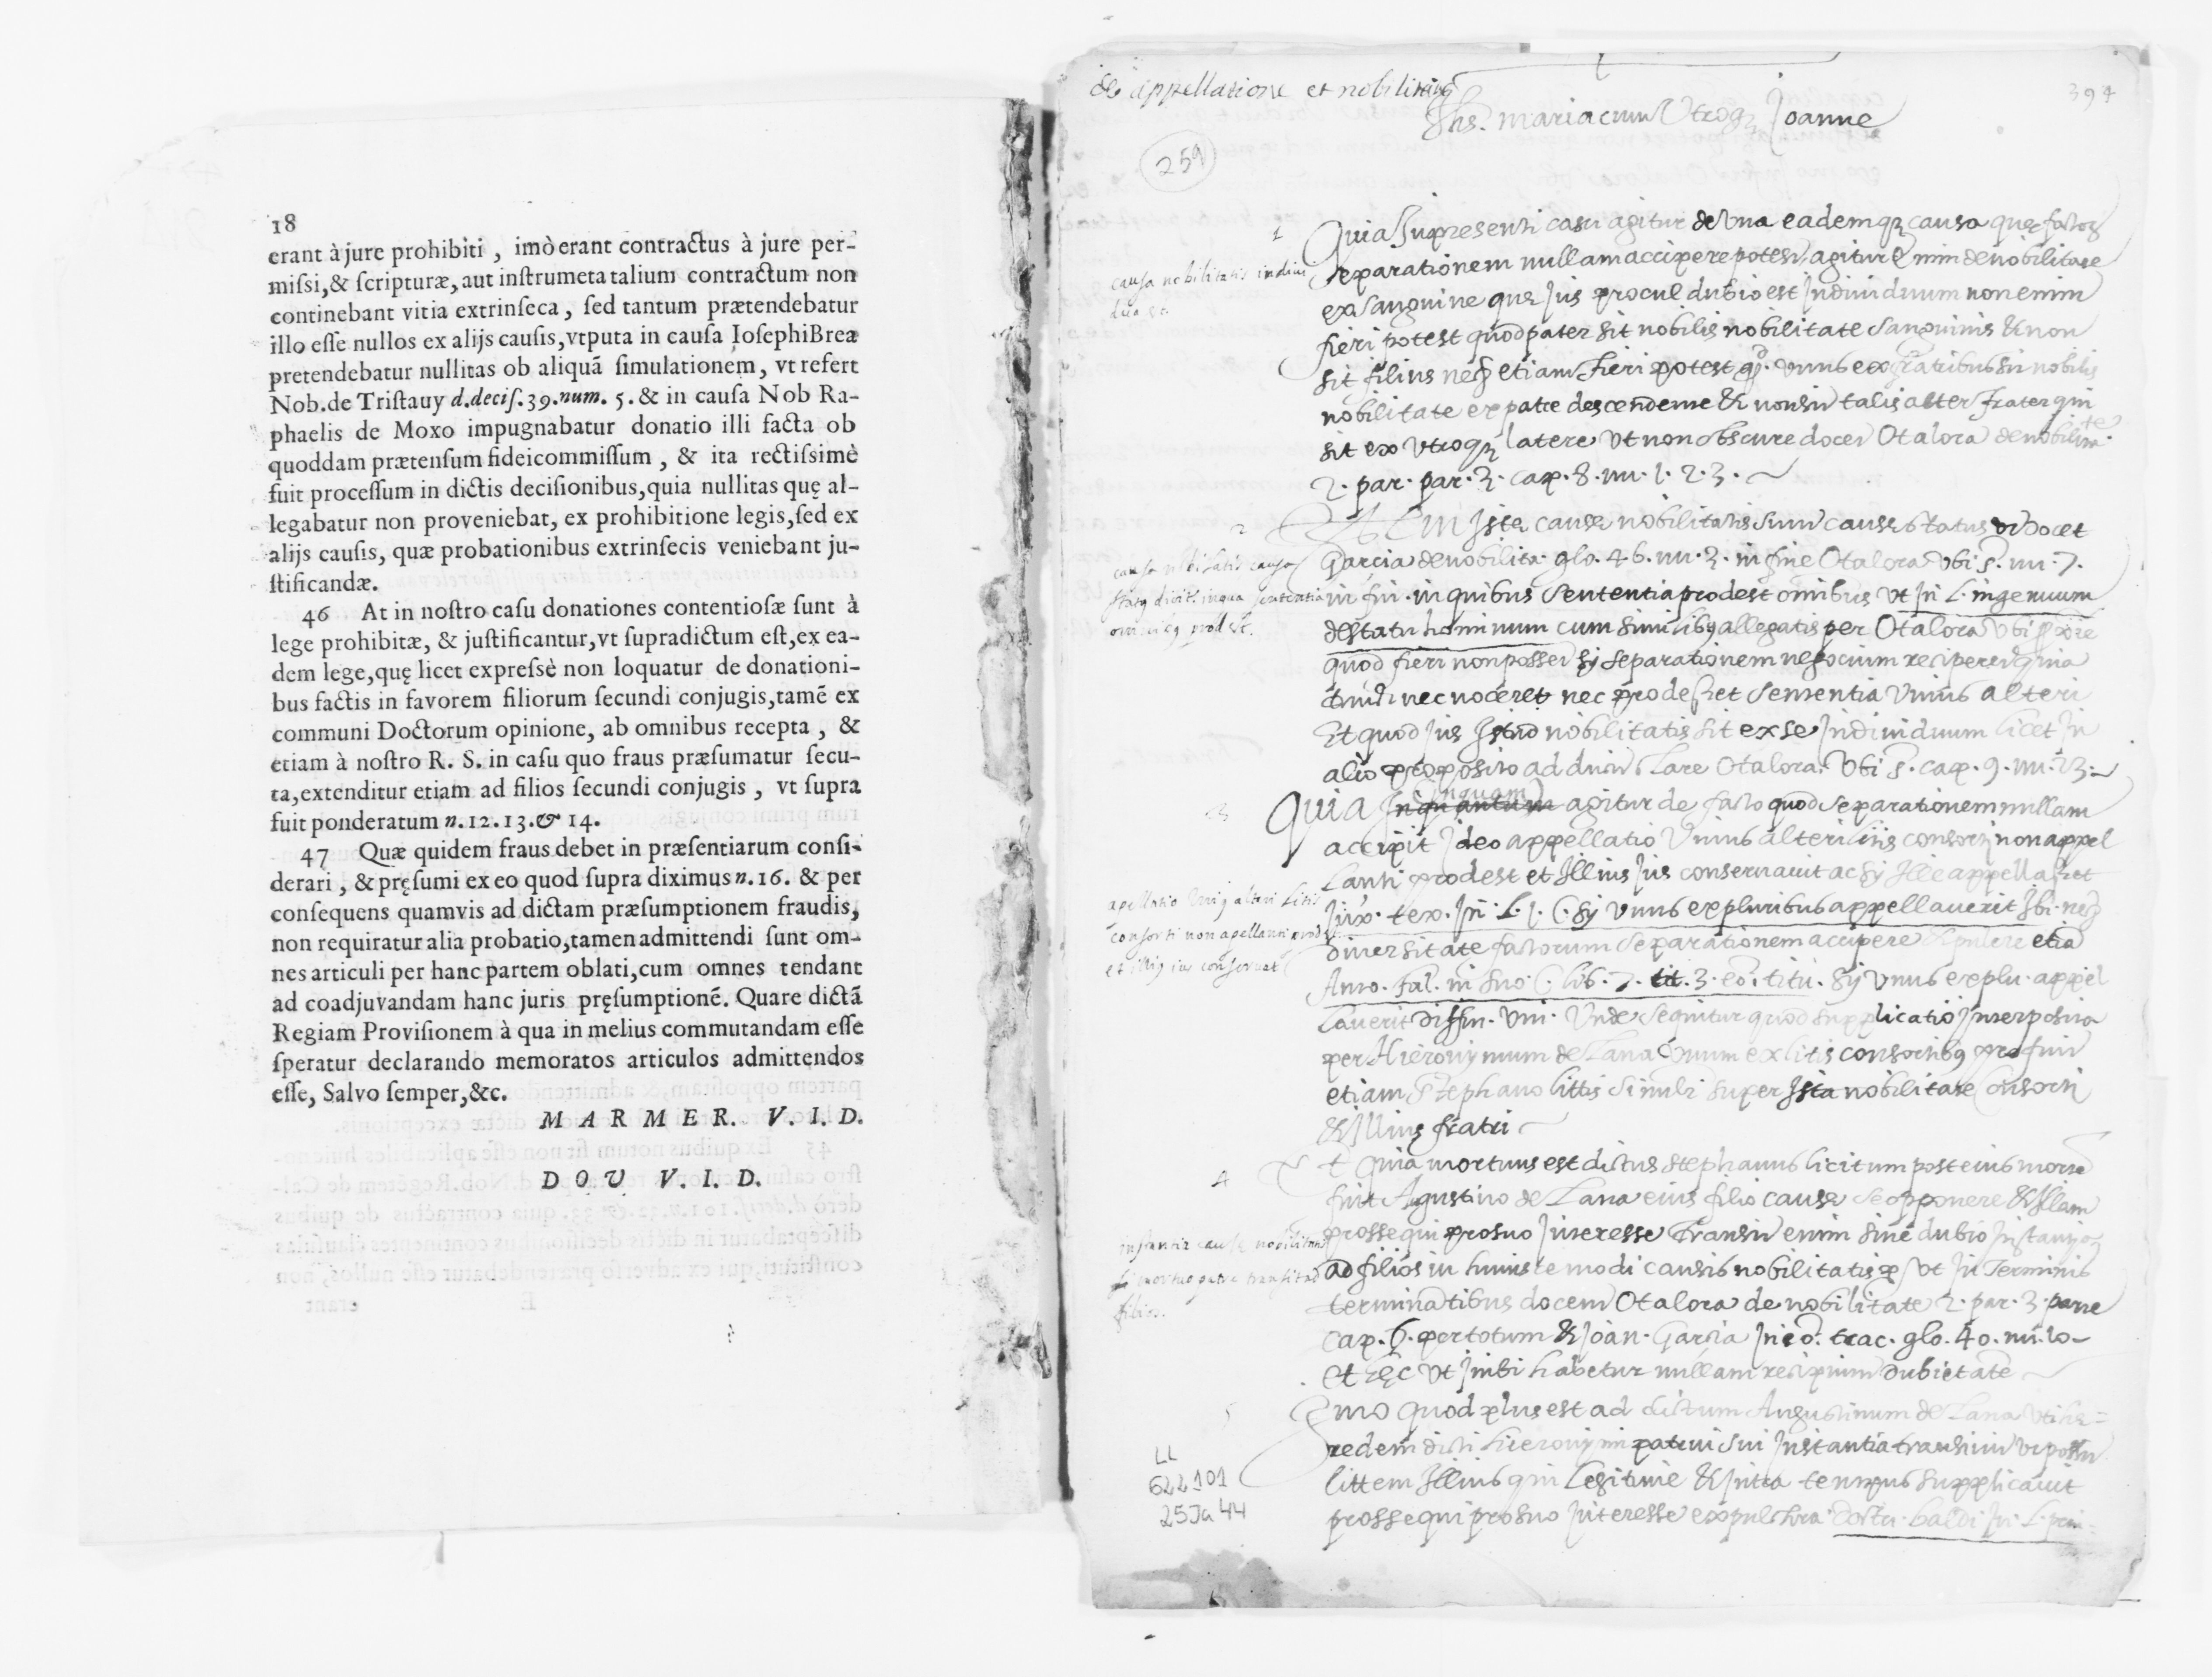 18
erant à jure prohibiti, imò erant contractus à jure per-
miſsi, & ſcripturæ, aut inſtrumeta talium contractum non
continebant vitia extrinſeca, ſed tantum prætendebatur
illo eſſe nullos ex alijs cauſis, vtputa in cauſa Ioſephi Brea
pretendebatur nullitas ob aliquã ſimulationem, vt refert
Nob. de Triſtauy d. deciſ. 39. num. 5. & in cauſa Nob Ra-
phaelis de Moxo impugnabatur donatio illi facta ob
quoddam prætenſum fideicommiſſum, & ita rectiſsimè
fuit proceſſum in dictis deciſionibus, quia nullitas quę al-
legabatur non proveniebat, ex prohibitione legis, ſed ex
alijs cauſis, quæ probationibus extrinſecis veniebant ju-
ſtificandæ.
46 At in noſtro caſu donationes contentioſæ ſunt à
lege prohibitæ, & juſtificantur, vt ſupradictum eſt, ex ea-
dem lege, quę licet expreſsè non loquatur de donationi-
bus factis in favorem filiorum ſecundi conjugis, tamẽ ex
communi Doctorum opinione, ab omnibus recepta, &
etiam à noſtro R. S. in caſu quo fraus præſumatur ſecu-
ta, extenditur etiam ad filios ſecundi conjugis, vt ſupra
fuit ponderatum n. 12. 13. & 14.
47 Quæ quidem fraus debet in præſentiarum conſi-
derari, & pręſumi ex eo quod ſupra diximus n. 16. & per
conſequens quamvis ad dictam præſumptionem fraudis,
non requiratur alia probatio, tamen admittendi ſunt om-
nes articuli per hanc partem oblati, cum omnes tendant
ad coadjuvandam hanc juris pręſumptionẽ. Quare dictã
Regiam Proviſionem à qua in melius commutandam eſſe
ſperatur declarando memoratos articulos admittendos
eſſe, Salvo ſemper, &c.
MARMER. V. I. D.
DOU V. I. D.
de appellatione et nobilitate
394
Jhs. maria cum Vtroq3 Joanne
259
1
Quia in presenti casu agitur de Vna eademq3 causa que
separationem nullam accipere potest, agitur enim de nobilitate
ex sanguine que Jus procul dubio est Indiuiduum non enim
fieri potest quod pater sit nobilis nobilitate sanguinis & non
sit filius neq3 etiam fieri potest q. vnus ex fratribus sit nobilis
nobilitate ex patre descendente & non sit talis alter frater qui
sit ex Vtroq3 latere Vt non obscure docet Otalora de nobilitate
2. par. par. 3. cap. 8. nu. 1. 2. 3.
causa nobilitatis indiui
dua
2
Item Iste cause nobilitatis sunt cause status Vt docet
Garcia de nobilita. glo. 46. nu. 3. in fine Otalora Vbi s. nu. 7.
in fin. in quibus sententia prodest omnibus Vt In L. ingenuum
de statu hominum cum similibus allegatis per Otalora Vbi
quod fieri non posset sy separationem negocium reciperet quia
nec noceret nec prodesset sententia Vnius alteri
Et quod Jus Istud nobilitatis sit ex se Indiuiduum licet In
alio proposito ad Otalora. Vbi s. cap. 9. nu. 23.
3
Quia Inquantum agitur de facto quod separationem nullam
accipit Ideo appellatio Vnius alteri litis consorti non appel
lanti prodest et Illius Jus conseruauit ac sy Ille appellasset
Jux. tex. In. L. 1. C. sy Vnus ex pluribus appellauerit Ibi. neq3
diuersitate factorum separationem accipere etia
Anto. fab. in suo C. lib. 7. tit. 3. eo. titu. sy Vnus ex plu. appel
lauerit diffin. Vni. Vnde sequitur quod supplicatio Interposita
per Hieronymum de Lana Vnum ex litis consortibus profuit
etiam Stephano super Ista nobilitate Consorti
& Illius fratri
apellatio Vnius alteri litis
consorti non apellanti prodest
et illius ius conseruat
4
Et quia mortuus est dictus stephanus licitum post eius mortem
fuit Agustino de Lana eius filio cause se opponere & Illam
prossequi pro suo Interesse Transit enim sine dubio Instantia
ad filios in huiuscemodi causis nobilitatis Vt In Terminis
terminantibus docent Otalora de nobilitate 2. par. 3. parte
cap. 6. per totum & Joan. Garsia In eo. trac. glo. 40. nu. 10
et hec Vt Inibi habetur nullam recipiunt dubietatem
instantia cause nobilitatis
mortuo patre transit ad
filios.
5
Imo quod plus est ad dictum Augustinum de Lana Vti he=
redem dicti Hieronymi patrui sui Instantia transiuit Vt possit
littem Illius qui legitime & Intra tempus supplicauit
prossequi pro suo Interesse ex pulchra doctri. baldi In. L.
LL
622101
25Ja44